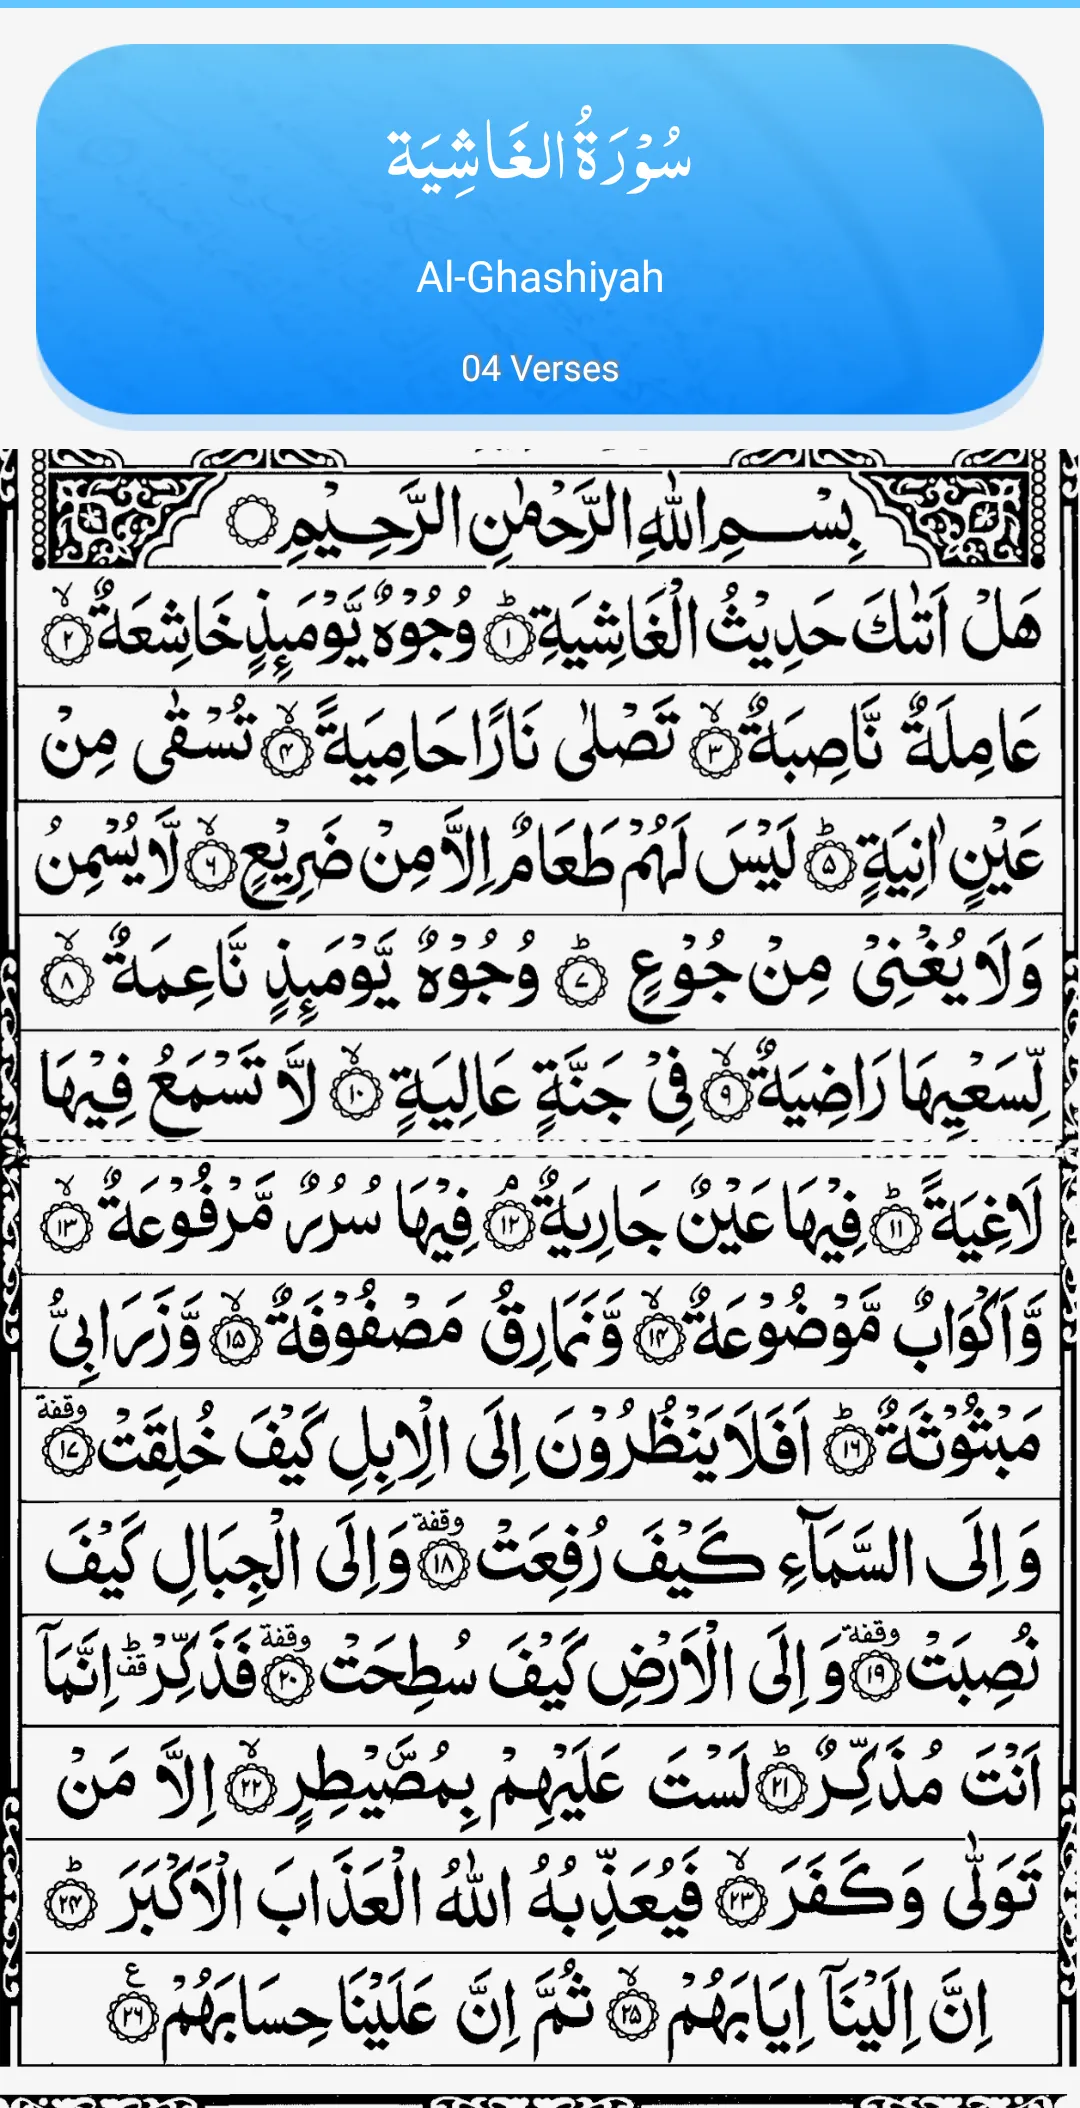 سُوْرَةُ الغَاشِيَة
Al-Ghashiyah
04 Verses
بِسْمِ اللّٰهِ الرَّحْمٰنِ الرَّحِيْمِ
هَلْ اَتٰىكَ حَدِيْثُ الْغَاشِيَةِؕ ۱ وُجُوْهٌ يَّوْمَىِٕذٍ خَاشِعَةٌۙ ۲
عَامِلَةٌ نَّاصِبَةٌۙ ۳ تَصْلٰى نَارًا حَامِيَةًۙ ۴ تُسْقٰى مِنْ
عَيْنٍ اٰنِيَةٍؕ ۵ لَيْسَ لَهُمْ طَعَامٌ اِلَّا مِنْ ضَرِيْعٍۙ ۶ لَّا يُسْمِنُ
وَلَا يُغْنِىْ مِنْ جُوْعٍؕ ۷ وُجُوْهٌ يَّوْمَىِٕذٍ نَّاعِمَةٌۙ ۸
لِّسَعْيِهَا رَاضِيَةٌۙ ۹ فِىْ جَنَّةٍ عَالِيَةٍۙ ۱۰ لَّا تَسْمَعُ فِيْهَا
لَاغِيَةًؕ ۱۱ فِيْهَا عَيْنٌ جَارِيَةٌۘ ۱۲ فِيْهَا سُرُرٌ مَّرْفُوْعَةٌۙ ۱۳
وَّاَكْوَابٌ مَّوْضُوْعَةٌۙ ۱۴ وَّنَمَارِقُ مَصْفُوْفَةٌۙ ۱۵ وَّزَرَابِىُّ
مَبْثُوْثَةٌؕ ۱۶ اَفَلَا يَنْظُرُوْنَ اِلَى الْاِبِلِ كَيْفَ خُلِقَتْ وقفة ۱۷
وَاِلَى السَّمَآءِ كَيْفَ رُفِعَتْ وقفة ۱۸ وَاِلَى الْجِبَالِ كَيْفَ
نُصِبَتْ وقفة ۱۹ وَاِلَى الْاَرْضِ كَيْفَ سُطِحَتْ وقفة ۲۰ فَذَكِّرْ ؕ قف اِنَّمَآ
اَنْتَ مُذَكِّرٌؕ ۲۱ لَسْتَ عَلَيْهِمْ بِمُصَۜيْطِرٍۙ ۲۲ اِلَّا مَنْ
تَوَلّٰى وَكَفَرَۙ ۲۳ فَيُعَذِّبُهُ اللّٰهُ الْعَذَابَ الْاَكْبَرَؕ ۲۴
اِنَّ اِلَيْنَآ اِيَابَهُمْۙ ۲۵ ثُمَّ اِنَّ عَلَيْنَا حِسَابَهُمْ ع ۲۶